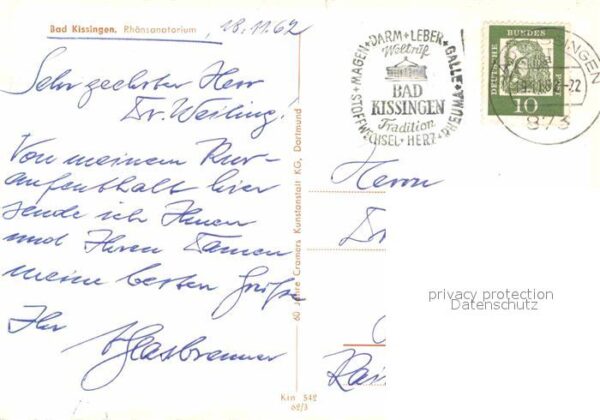 Bad Kissingen, Rhönsanatorium
18.11.62
Sehr geehrter Herr
Dr. Weiling!
Von meinem Kur-
aufenthalt hier
sende ich Ihnen
und Ihren Damen
meine besten Grüße
Ihr
60 Jahre Cramers Kunstanstalt KG, Dortmund
MAGEN + DARM + LEBER + GALLE + RHEUMA + HERZ + STOFFWECHSEL
Weltruf
BAD
KISSINGEN
Tradition
DEUTSCHE BUNDESPOST
10
873
Herrn
Dr
privacy protection
Datenschutz
62/3